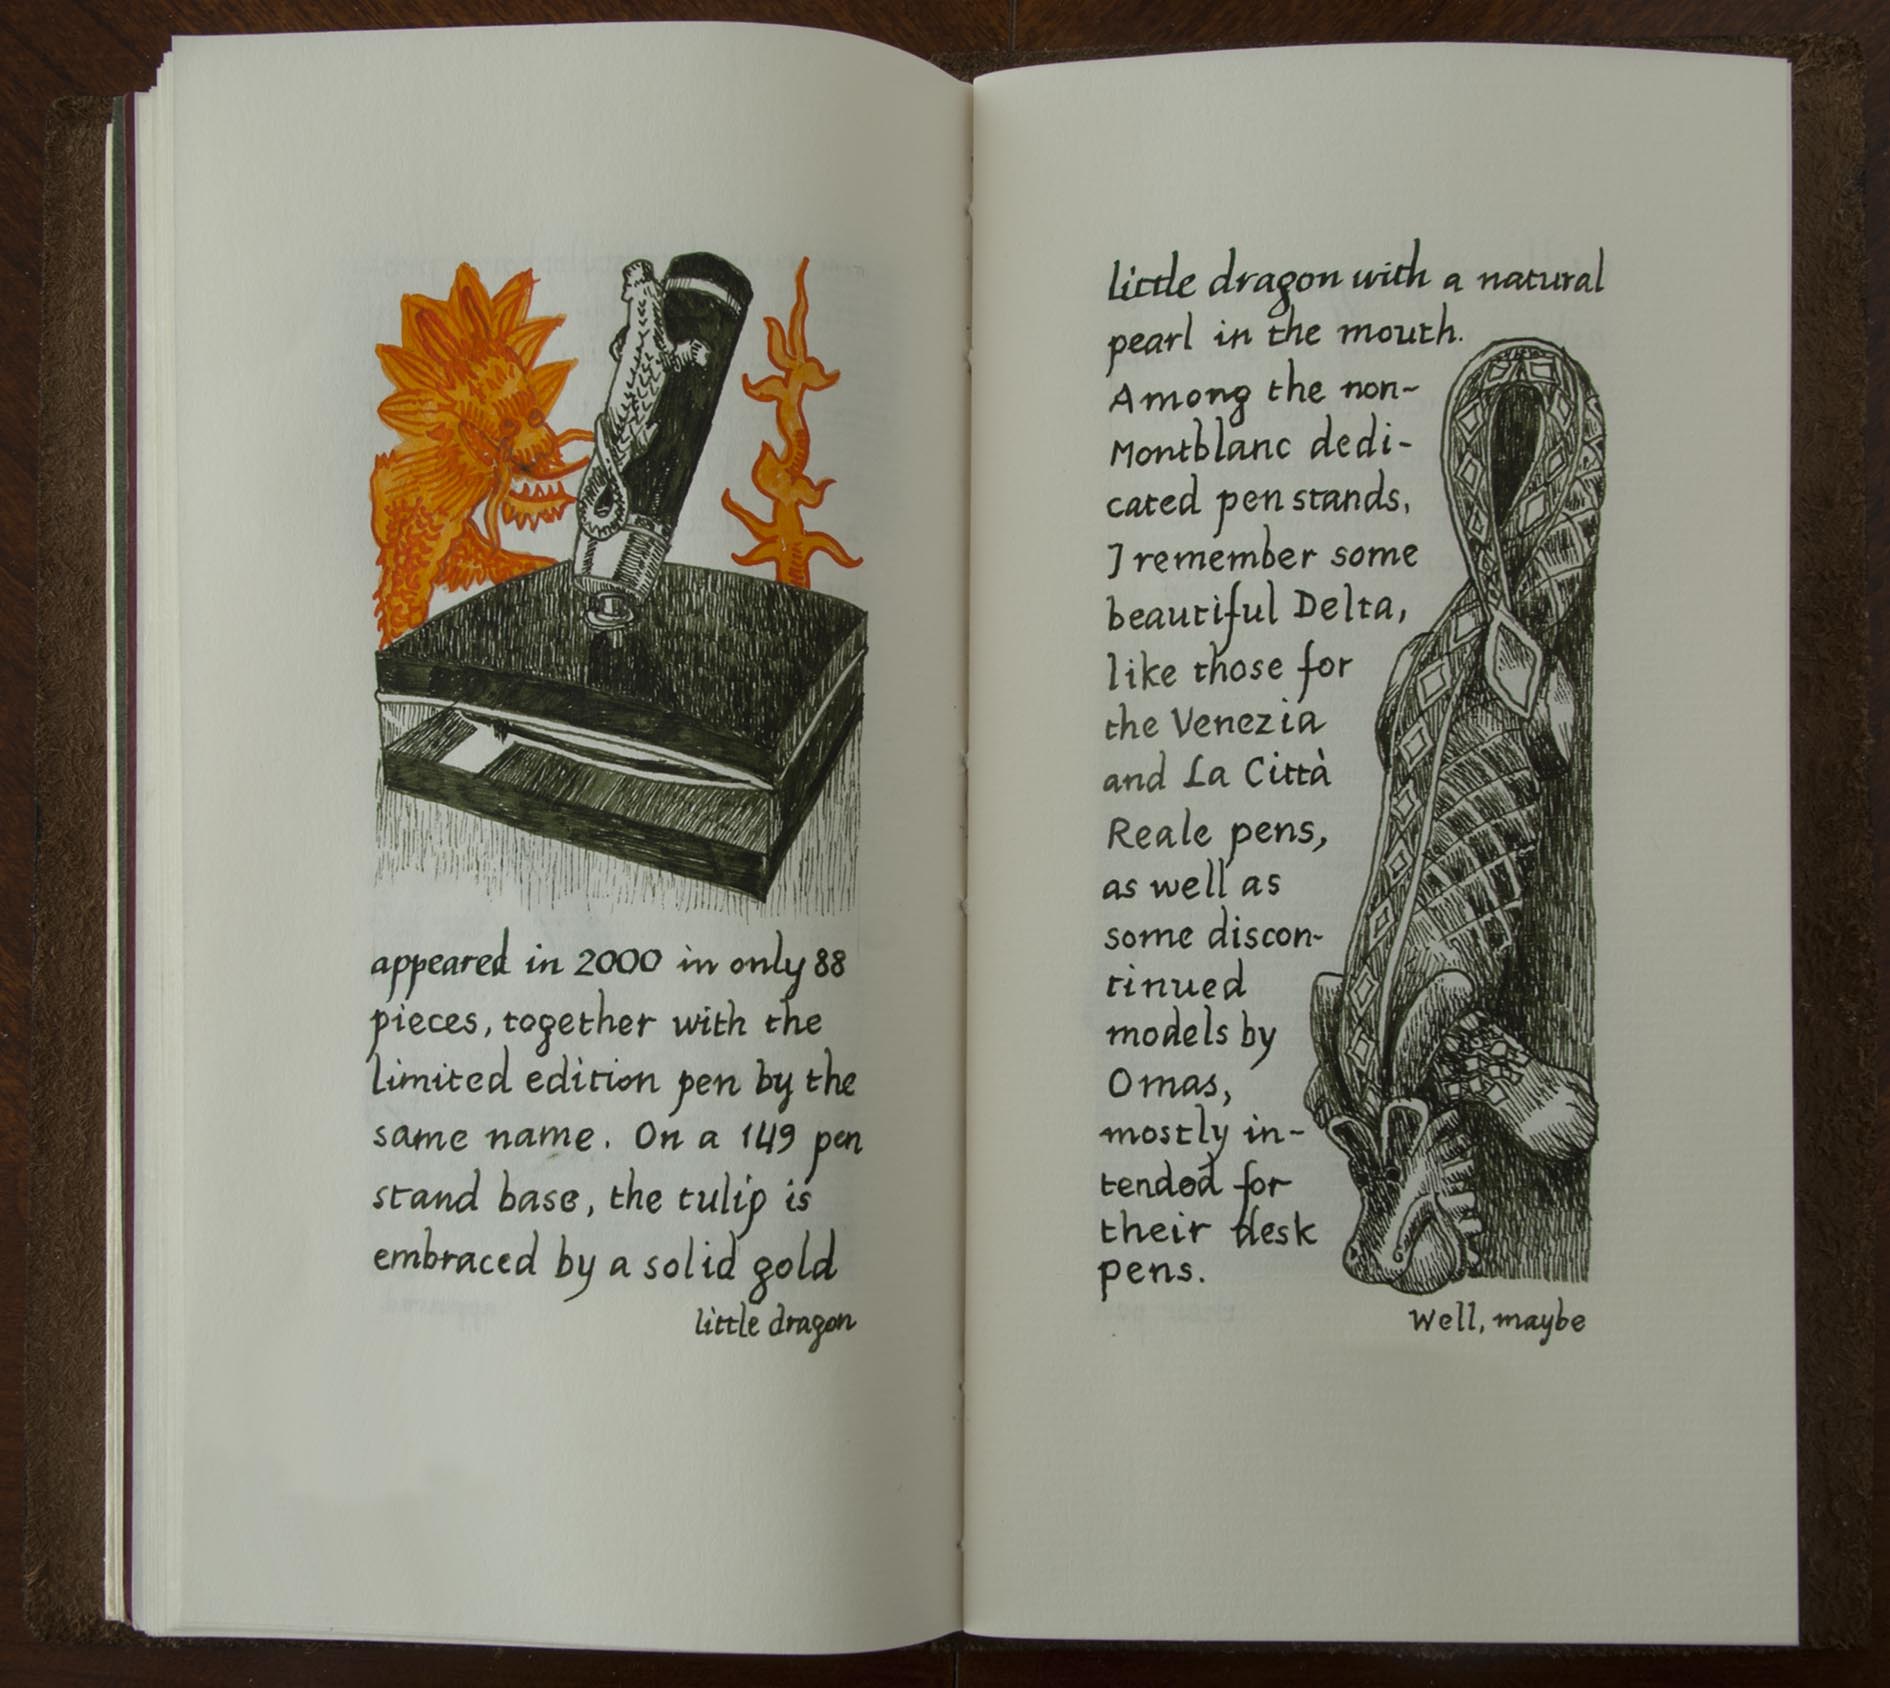 appeared in 2000 in only 88
pieces, together with the
limited edition pen by the
same name. On a 149 pen
stand base, the tulip is
embraced by a solid gold
little dragon
little dragon with a natural
pearl in the mouth.
Among the non-
Montblanc dedi-
cated pen stands,
I remember some
beautiful Delta,
like those for
the Venezia
and La Città
Reale pens,
as well as
some discon-
tinued
models by
Omas,
mostly in-
tended for
their desk
pens.
Well, maybe